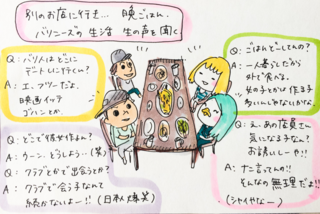 別のお店に行き… 晩ごはん。
バリニーズの生活 生の声を聞く
Q: バリ人はどこに
デートしに行くー？
A: エ、フツーだよ。
映画イッテ
ゴハンとか。
Q: どこで彼女作るん？
A: ウーン、どうしよう…(笑)
Q: クラブとかで出会うとか？
A: クラブで会う子なんて
続かないよー!! (日本人爆笑)
Q: ごはんどーしてんの？
A: 一人暮らしだから
外で食べる。
女の子とかは作る子
多いんじゃないかな。
Q: え、あの店員さん
気になる子なん？
お誘いしーや!!
A: ナニ言ってんの!!
そんなの無理だよ!!
(シャイやなー)